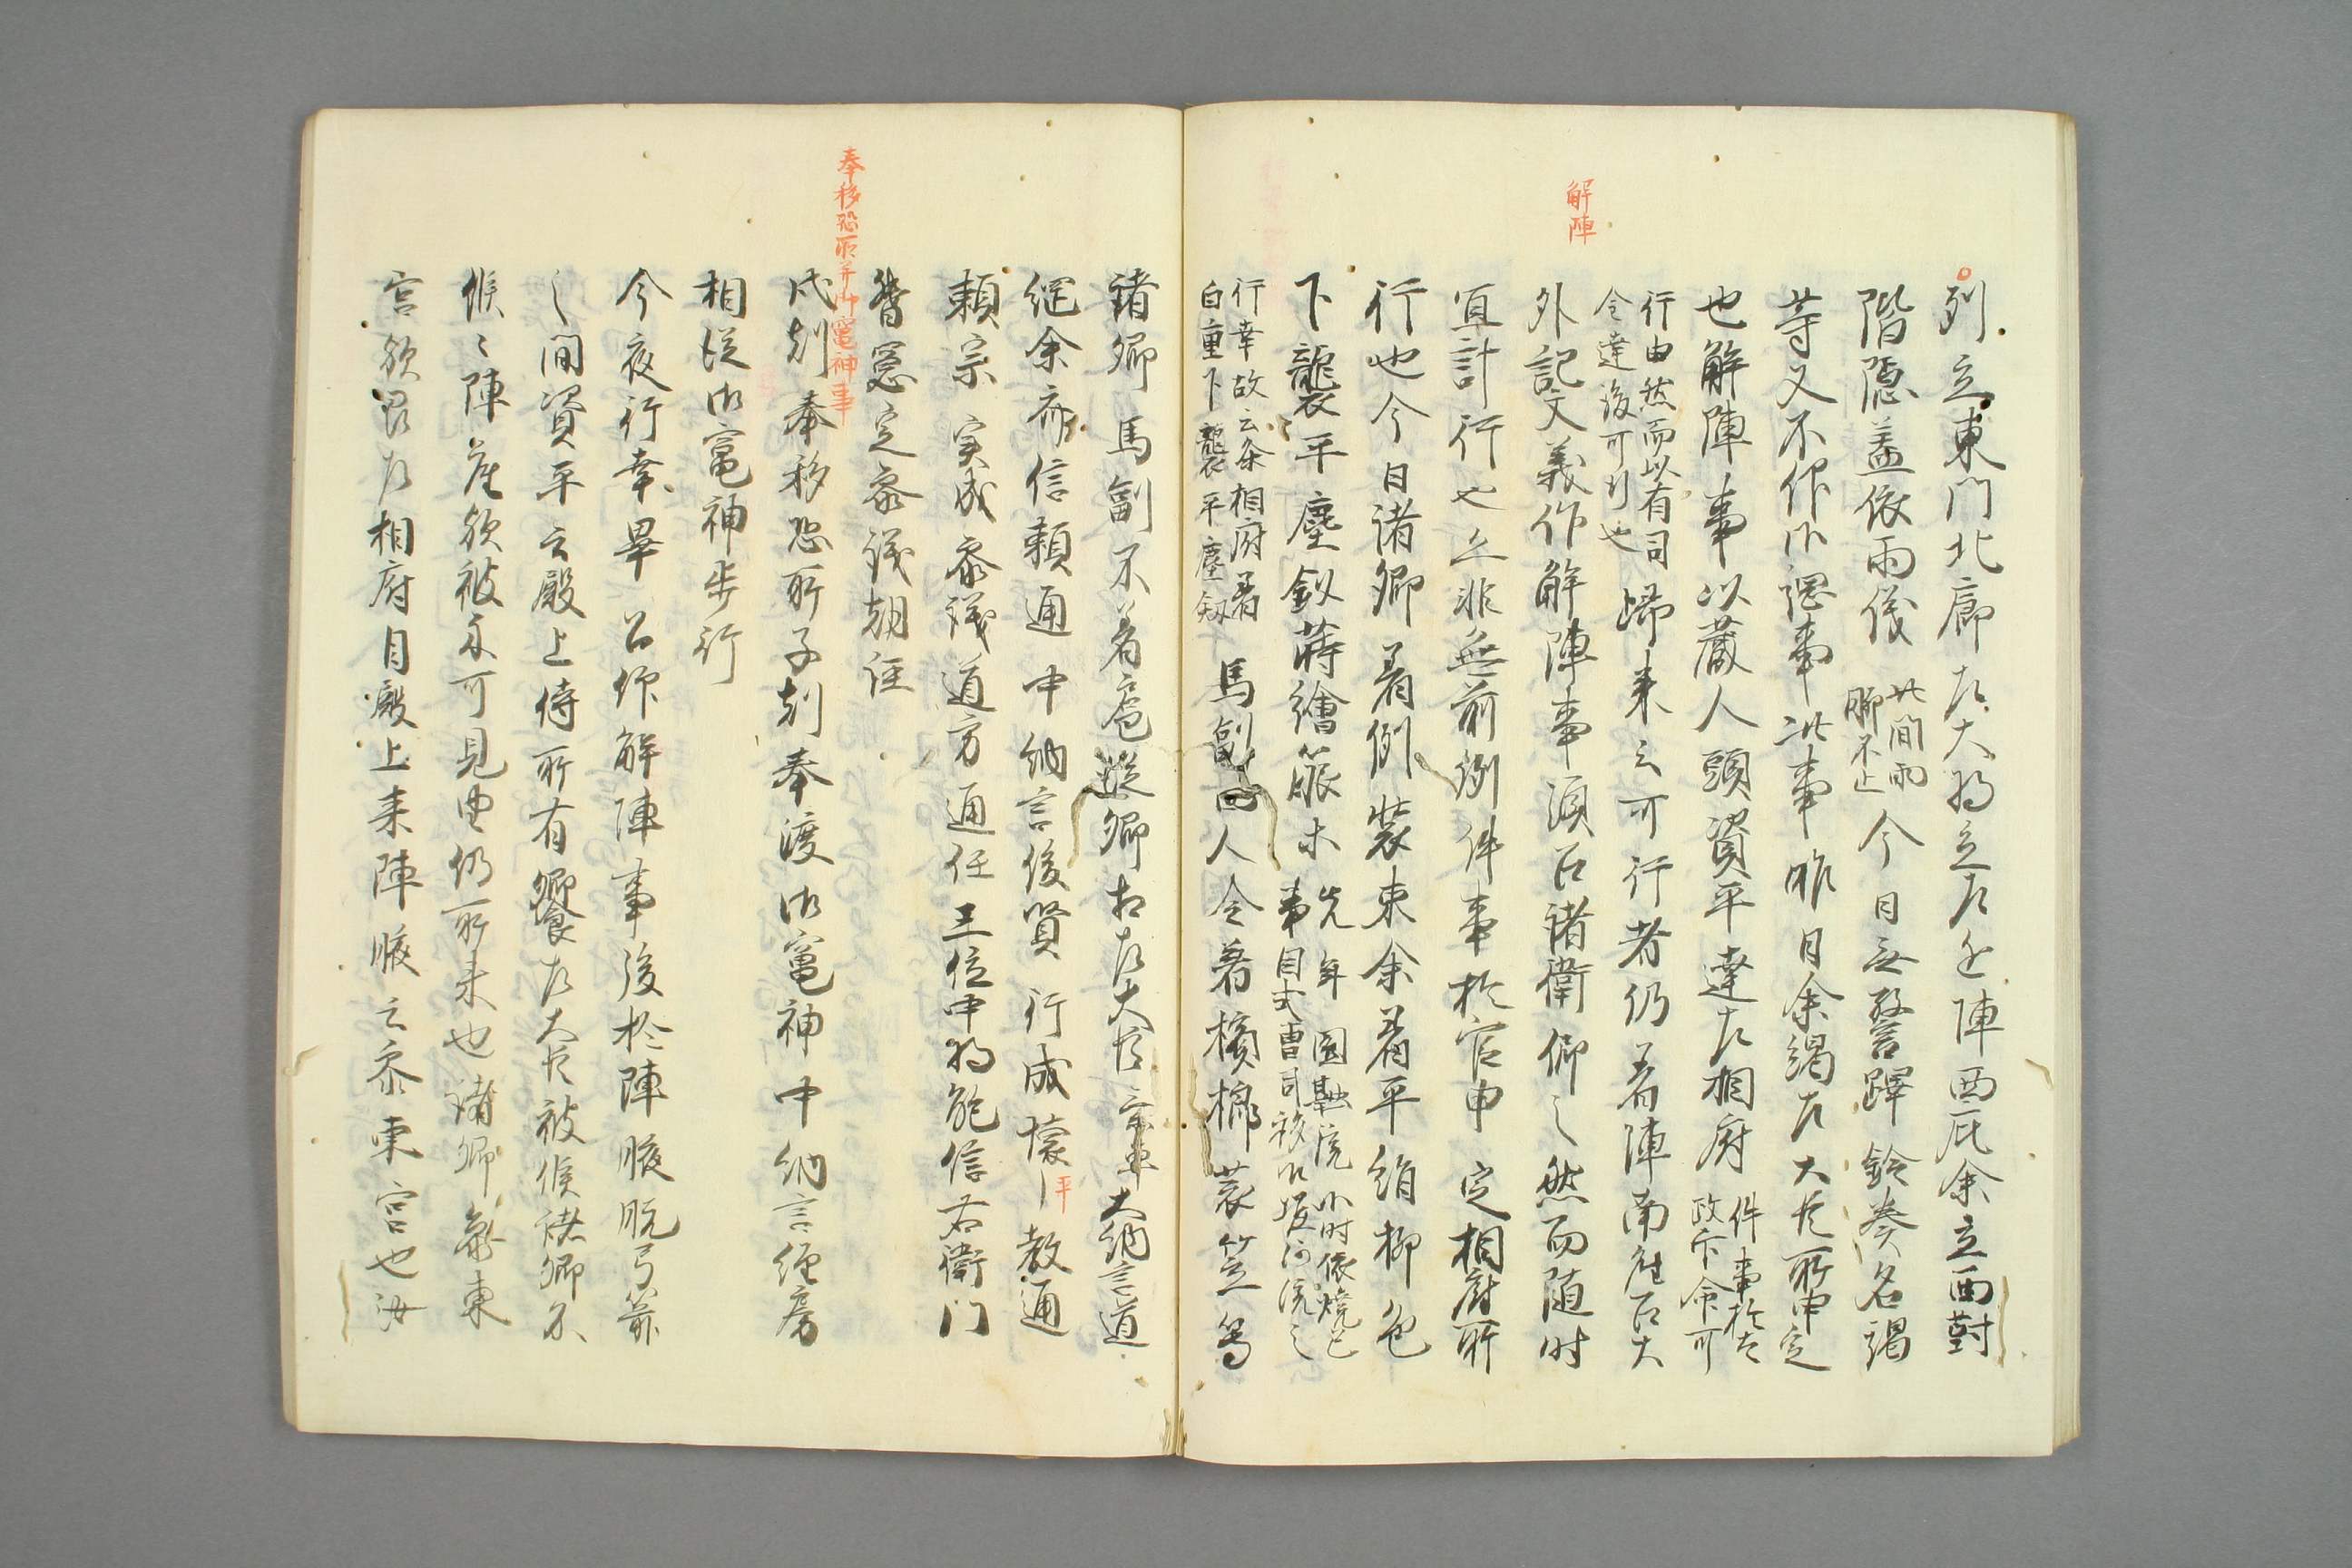 解陣
列立東門北廊左大将立左近陣西庇余立西對
階隠蓋依雨儀此間雨脚不止今日無警蹕鈴奏名謁
等又不作御綱事此事昨日余謁左大臣所申定
也解陣事以蔵人頭資平達左相府件事於左政不命可
行由然而以有司令達後可行也歸来云可行者仍着陣南座召大
外記文義作解陣事須召諸衛仰之然而随時
宜計行也亦非無前例件事於官申定相府所
行也今日諸卿着例装束余着平絹柳色
下襲平塵釼蒔繪箙木先年園韓院小时依焼亡事自式曹司移御堀河院之
行幸故云条相府着白重下襲平塵釼馬副四人令着檳榔蓑笠等
諸卿馬副不着扈従卿相左大臣大納言道
綱余齊信頼通中納言俊賢行成懐平教通
頼宗実成参議道方通任三位中将能信右衛門
督憲定参議朝経
奉移恐所并御竈神事
戌剋奉移恐所子剋奉渡御竈神中納言經房
相従御竈神歩行
今夜行幸畢召仰解陣事後於陣腋脱弓箭
之間資平云殿上侍所有饗左大臣被候諸卿不
候々陣座欲被示可見由仍所来也諸卿参東
宮欲罷左相府自殿上来陣腋云参東宮也汝